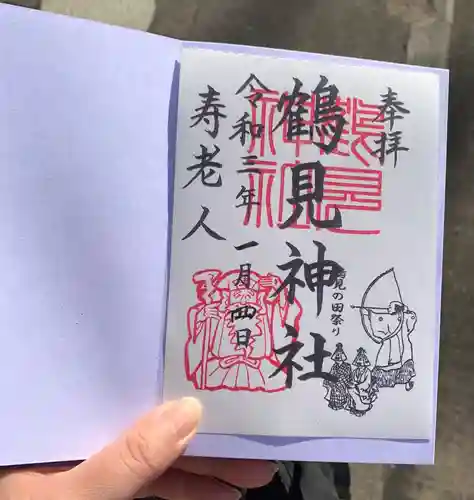 奉拝
鶴見神社
鶴見の田祭り
令和三年一月四日
寿老人
鶴見神社